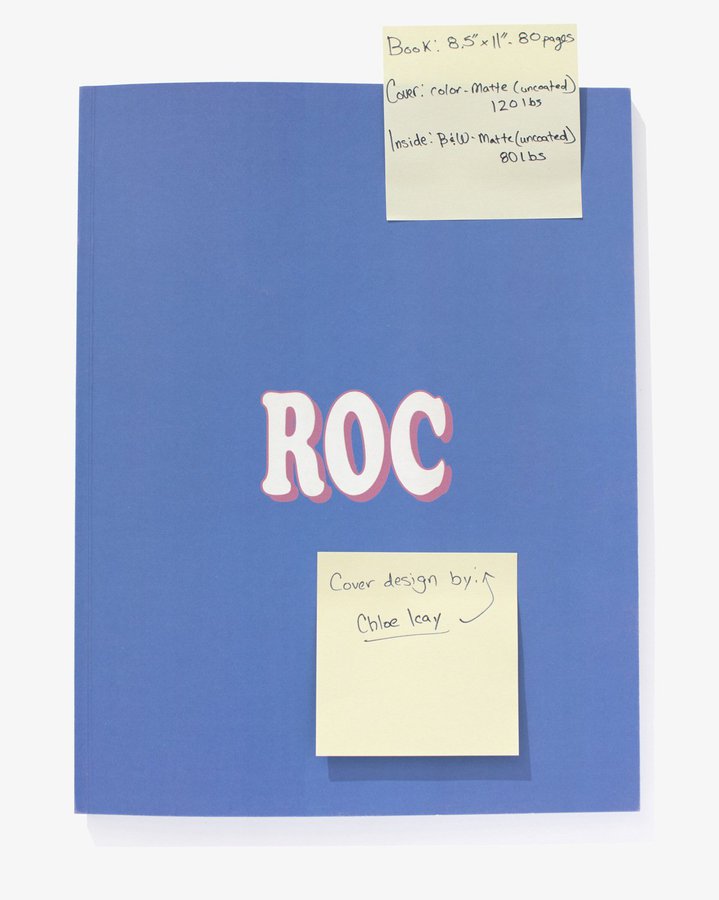 Book: 8.5" x 11" - 80 pages
Cover: color - Matte (uncoated)
120 lbs
Inside: B&W - Matte (uncoated)
80 lbs
ROC
Cover design by:
Chloe Icay